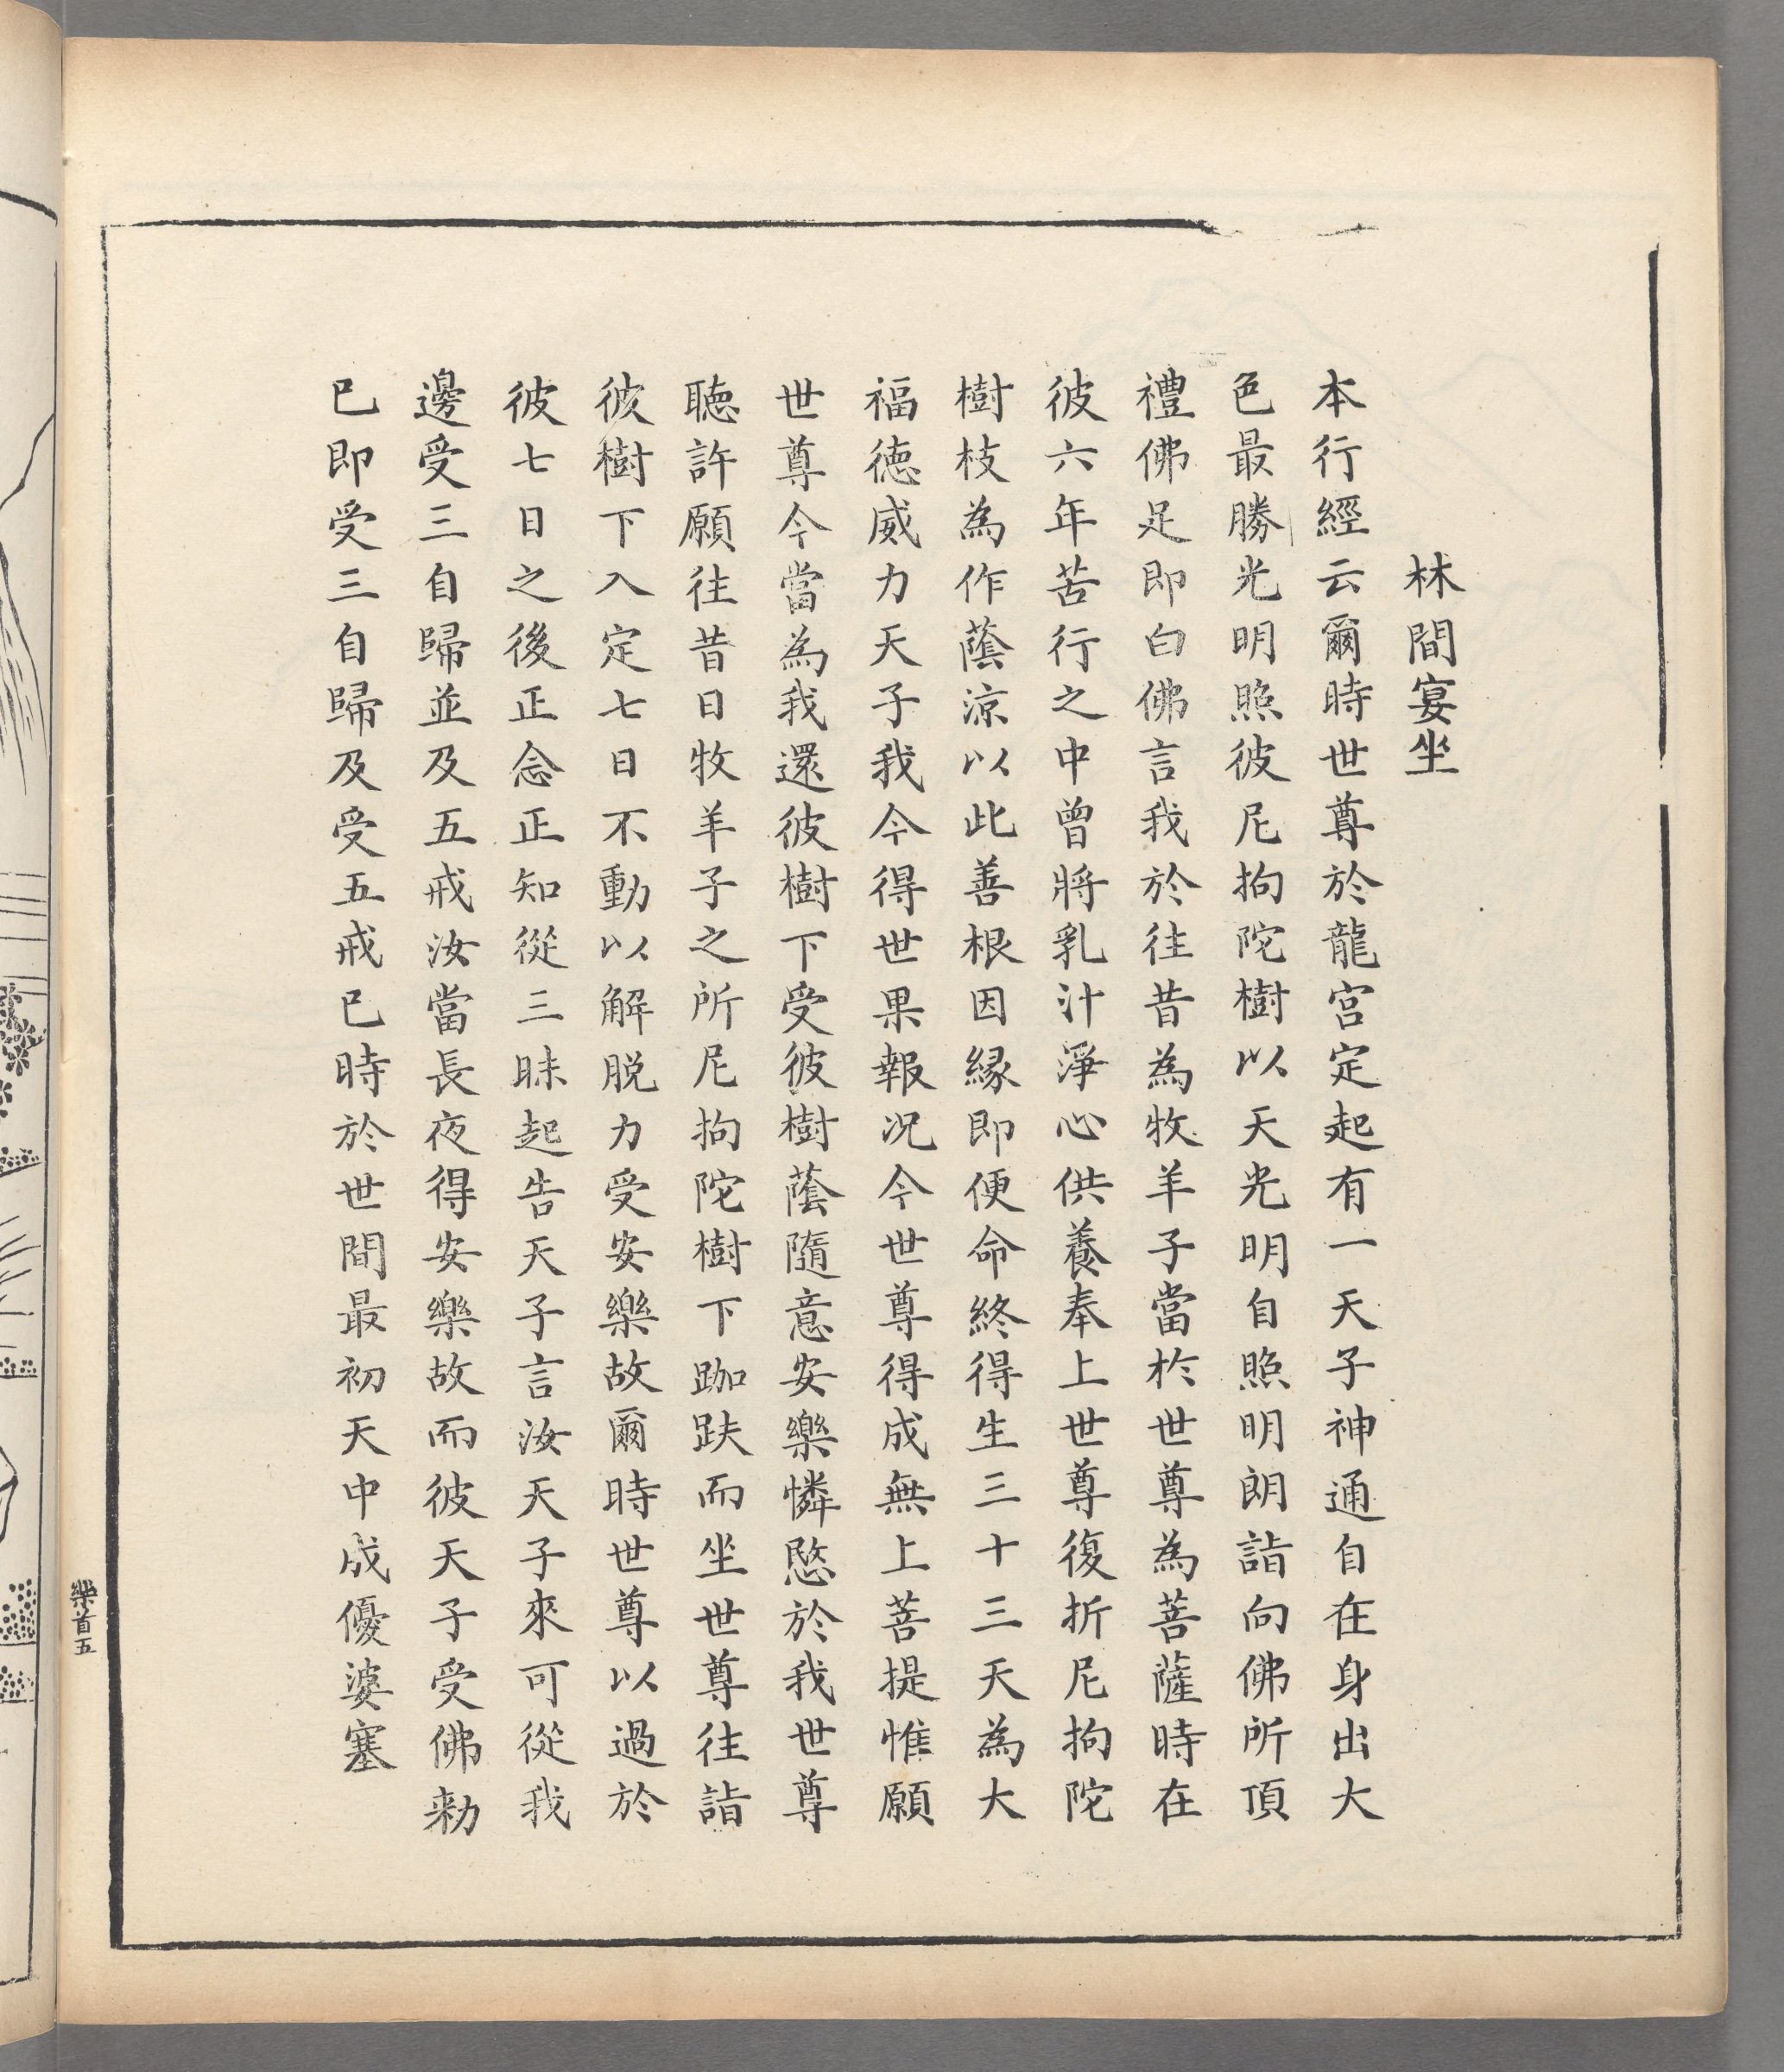 林間宴坐
本行經云爾時世尊於龍宮定起有一天子神通自在身出大
色最勝光明照彼尼拘陀樹以天光明自照明朗詣向佛所頂
禮佛足即白佛言我於往昔為牧羊子當於世尊為菩薩時在
彼六年苦行之中曾將乳汁淨心供養奉上世尊復折尼拘陀
樹枝為作蔭涼以此善根因緣即便命終得生三十三天為大
福徳威力天子我今得世果報况今世尊得成無上菩提惟願
世尊今當為我還彼樹下受彼樹蔭隨意安樂憐愍於我世尊
聽許願往昔日牧羊子之所尼拘陀樹下跏趺而坐世尊往詣
彼樹下入定七日不動以解脱力受安樂故爾時世尊以過於
彼七日之後正念正知從三昧起告天子言汝天子來可從我
邊受三自歸並及五戒汝當長夜得安樂故而彼天子受佛勑
已即受三自歸及受五戒已時於世間最初天中成優婆塞
樂首五